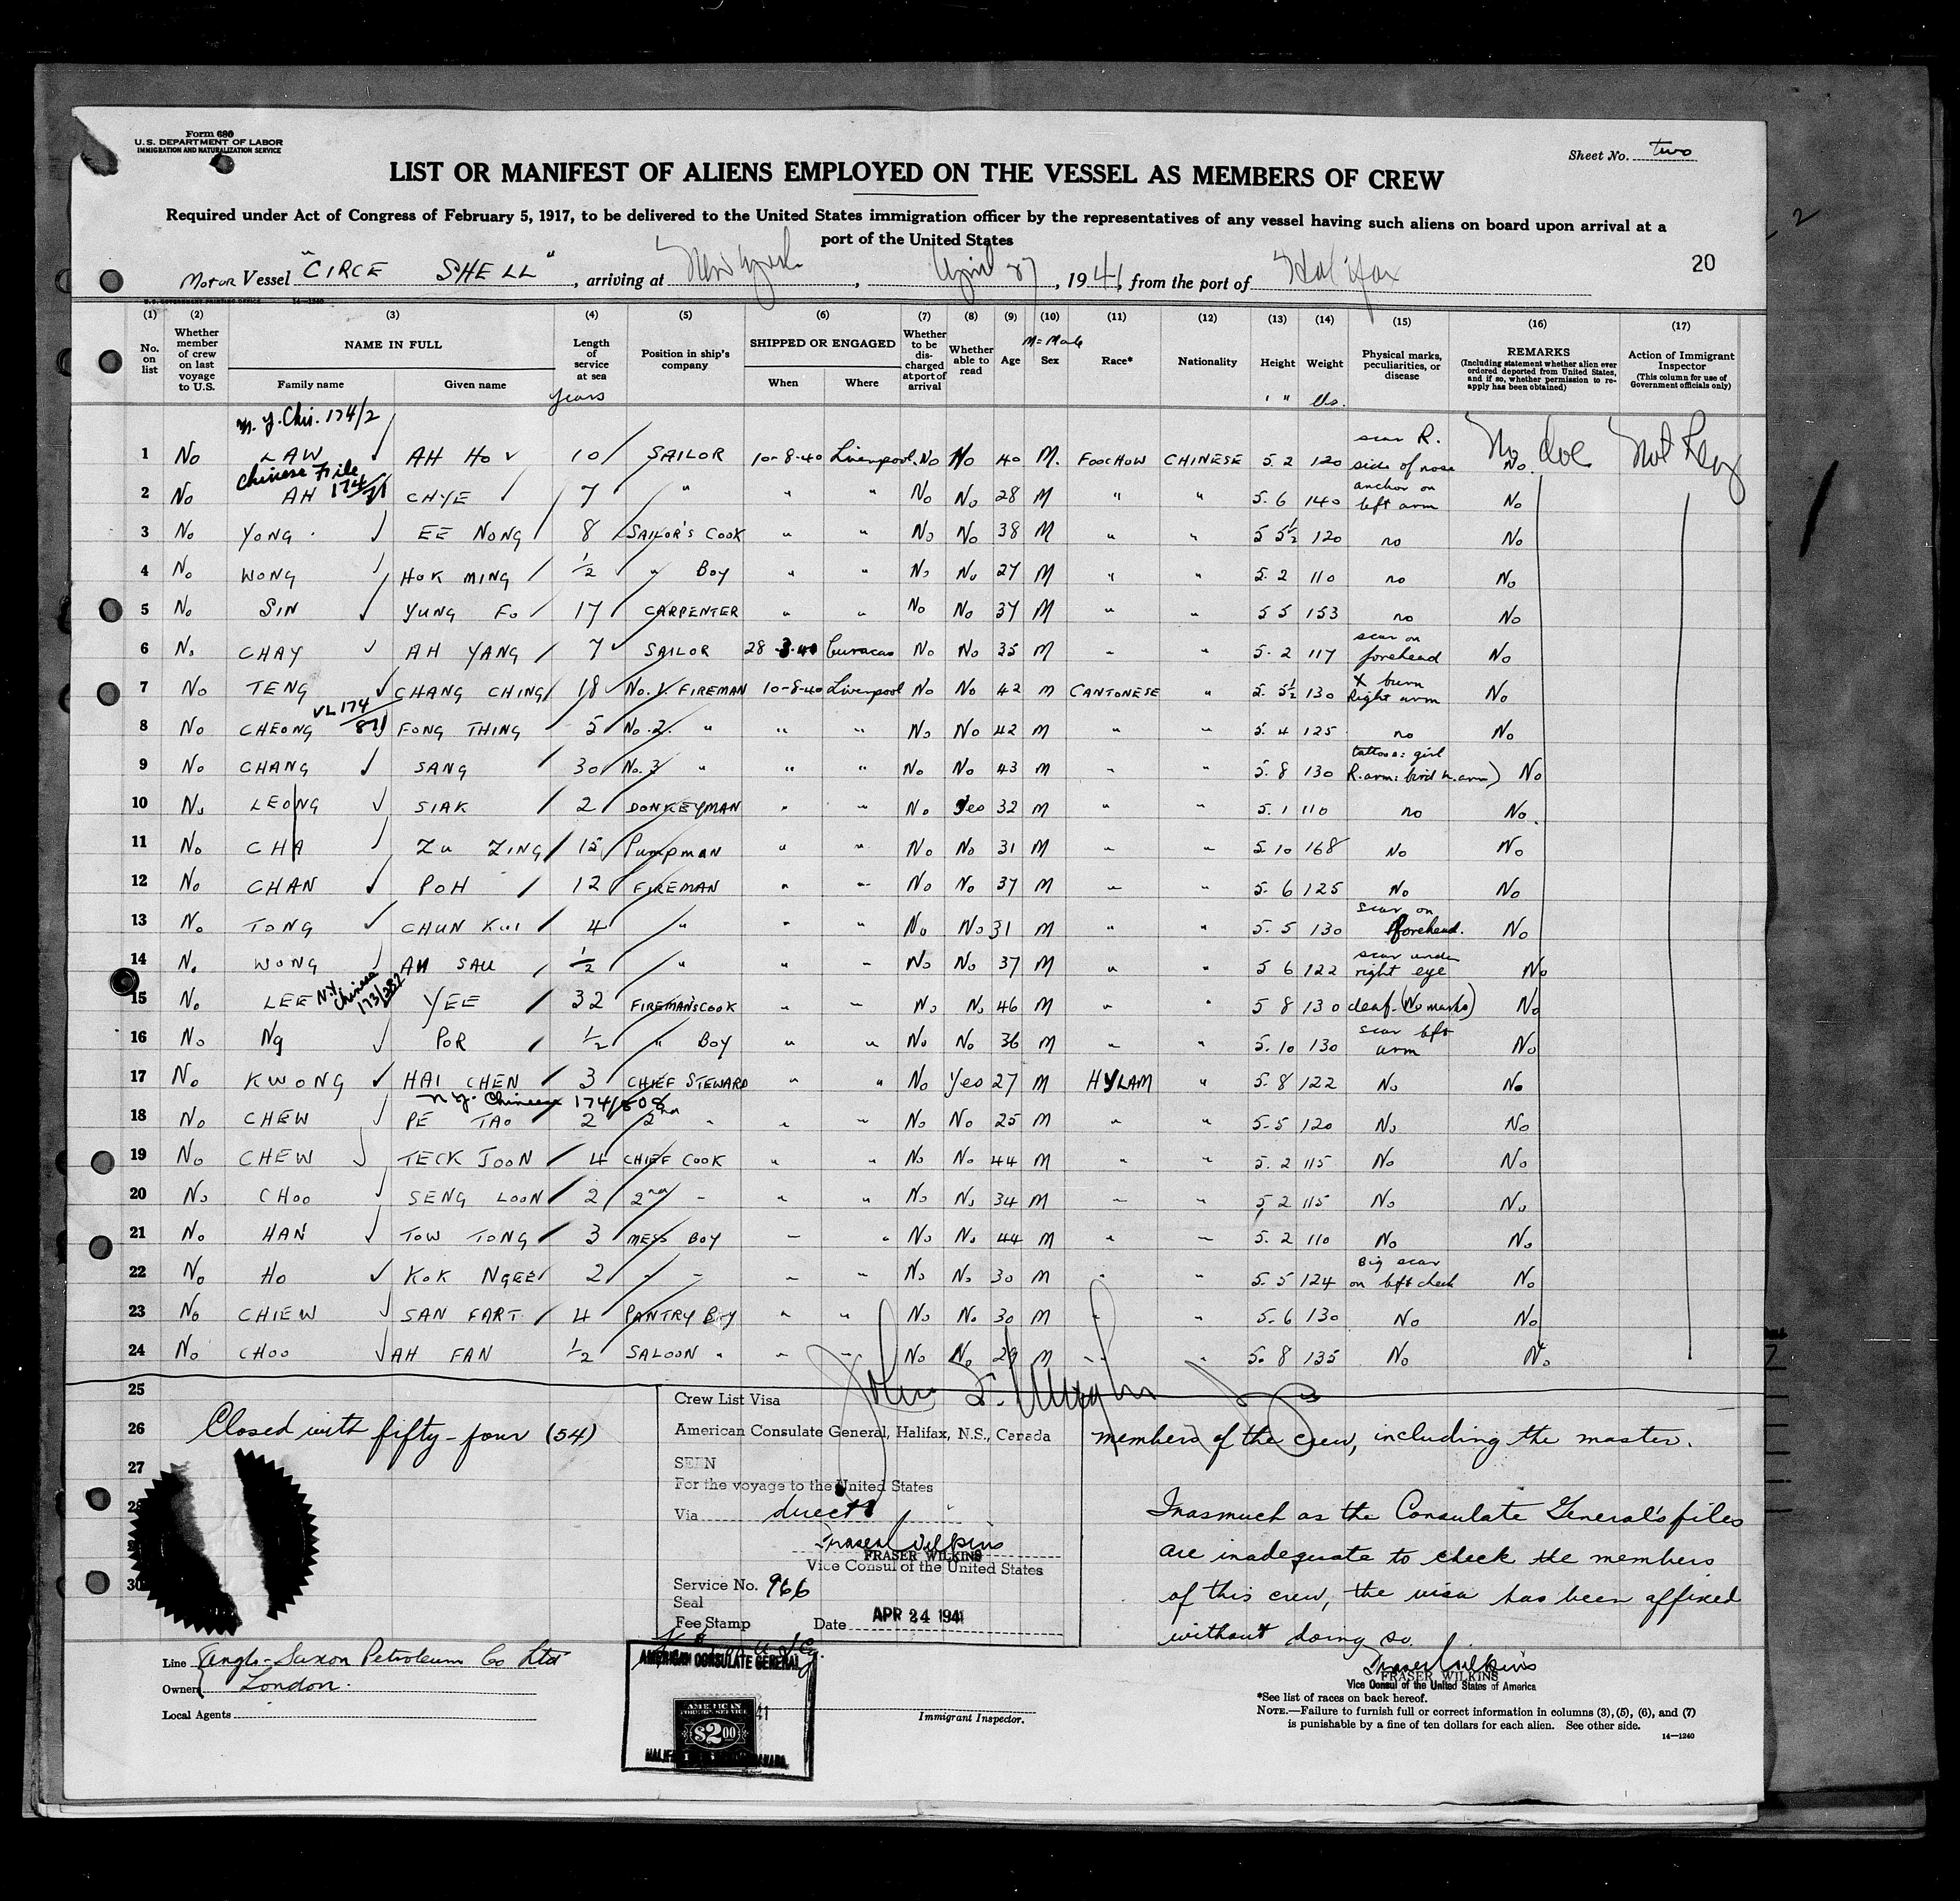 Form 680
U.S. DEPARTMENT OF LABOR
IMMIGRATION AND NATURALIZATION SERVICE
Sheet No. two
LIST OR MANIFEST OF ALIENS EMPLOYED ON THE VESSEL AS MEMBERS OF CREW
Required under Act of Congress of February 5, 1917, to be delivered to the United States immigration officer by the representatives of any vessel having such aliens on board upon arrival at a
port of the United States
2
20
Motor Vessel "CIRCE SHELL", arriving at New York, April 27, 1941, from the port of Halifax
U.S. GOVERNMENT PRINTING OFFICE 14-1240
(1) (2) (3) (4) (5) (6) (7) (8) (9) (10) (11) (12) (13) (14) (15) (16) (17)
No. on list
Whether member of crew on last voyage to U.S.
NAME IN FULL
Family name Given name
Length of service at sea
years
Position in ship's company
SHIPPED OR ENGAGED
When Where
Whether to be discharged at port of arrival
Whether able to read
Age
M = Male
Sex
Race*
Nationality
Height
' "
Weight
lbs.
Physical marks, peculiarities, or disease
REMARKS
(Including statement whether alien ever ordered deported from United States, and if so, whether permission to reapply has been obtained)
Action of Immigrant Inspector
(This column for use of Government officials only)
N. Y. Chi. 174/2
1 No LAW AH HO 10 SAILOR 10-8-40 Liverpool. No No 40 M. FOOCHOW CHINESE 5. 2 120 scar R. side of nose No.
Chinese File 174/
2 No AH CHYE 7 " " " No No 28 M " " 5. 6 140 anchor on left arm No
3 No YONG EE NONG 8 SAILOR'S COOK " " No No 38 M " " 5 5½ 120 no No
4 No WONG HOK MING ½ " BOY " " No No 27 M " " 5. 2 110 no No
5 No SIN YUNG FO 17 CARPENTER " " No No 37 M " " 5 5 153 no No
6 No CHAY AH YANG 7 SAILOR 28-3-40 Curacao No No 35 M " " 5. 2 117 scar on forehead No
7 No TENG CHANG CHING 18 No. 1 FIREMAN 10-8-40 Liverpool No No 42 M CANTONESE " 5. 5½ 130 X burn Right arm No
VL 174/871
8 No CHEONG FONG THING 5 No. 2. " " " No No 42 M " " 5. 4 125 no No
9 No CHANG SANG 30 No. 3 " " " No No 43 M " " 5. 8 130 tattoos: girl R. arm: bird L. arm) No
10 No LEONG SIAK 2 DONKEYMAN " " No Yes 32 M " " 5. 1 110 no No.
11 No CHA ZU ZING 15 Pumpman " " No No 31 M " " 5. 10 168 No No
12 No CHAN POH 12 FIREMAN " " No No 37 M " " 5. 6 125 No No
13 No TONG CHUN KUI 4 " " " No No 31 M " " 5. 5 130 scar on forehead. No
14 No WONG AH SAU ½ " " " No No 37 M " " 5 6 122 scar under right eye No
N.Y. Chinese 173/
15 No LEE YEE 32 FIREMAN'S COOK " " No No 46 M " " 5 8 130 deaf. (No marks) No
16 No Ng POR ½ " BOY " " No No 36 M " " 5. 10 130 scar left arm No
17 No KWONG HAI CHEN 3 CHIEF STEWARD " " No Yes 27 M HYLAM " 5. 8 122 No No
N.Y. Chinese 174/808
18 No CHEW PE TAO 2 2nd " " " No No 25 M " " 5. 5 120 No No
19 No CHEW TECK JOON 4 CHIEF COOK " " No No 44 M " " 5. 2 115 No No
20 No CHOO SENG LOON 2 2nd " " " No No 34 M " " 5, 2 115 No No
21 No HAN TOW TONG 3 MESS BOY " " No No 44 M " " 5. 2 110 No No
22 No HO KOK NGEE 2 " " " " No No 30 M " " 5. 5 124 Big scar on left cheek No
23 No CHIEW SAN FART 4 PANTRY BOY " " No No 30 M " " 5. 6 130 No No
24 No CHOO AH FAN ½ SALOON " " " No No 29 M " " 5. 8 135 No No
25
26 Closed with fifty-four (54) members of the crew, including the master.
27
28
30
Crew List Visa
American Consulate General, Halifax, N.S., Canada
SEEN
For the voyage to the United States
Via direct
Fraser Wilkins
FRASER WILKINS
Vice Consul of the United States
Service No. 966
Seal
Fee Stamp Date APR 24 1941
Inasmuch as the Consulate General's files
are inadequate to check the members
of this crew, the visa has been affixed
without doing so.
Fraser Wilkins
FRASER WILKINS
Vice Consul of the United States of America
Line Anglo-Saxon Petroleum Co Ltd
Owners London.
Local Agents
AMERICAN CONSULATE GENERAL
AMERICAN
FOREIGN SERVICE
$2.00
41
Immigrant Inspector.
*See list of races on back hereof.
NOTE.—Failure to furnish full or correct information in columns (3), (5), (6), and (7)
is punishable by a fine of ten dollars for each alien. See other side.
14—1240